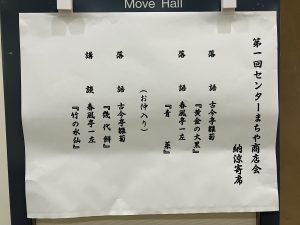 Move Hall
第一回センターまちや商店会
納涼寄席
落語 古今亭雛菊
『黄金の大黒』
落語 春風亭一左
『青菜』
(お仲入り)
落語 古今亭雛菊
『幾代餅』
講談 春風亭一左
『竹の水仙』